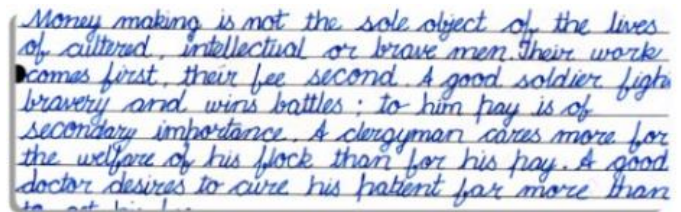 Money making is not the sole object of the lives
of cultered, intellectual or brave men. Their work
comes first, their fee second. A good soldier figh
bravery and wins battles; to him pay is of
secondary importance. A clergyman cares more for
the welfare of his flock than for his pay. A good
doctor desires to cure his patient far more than